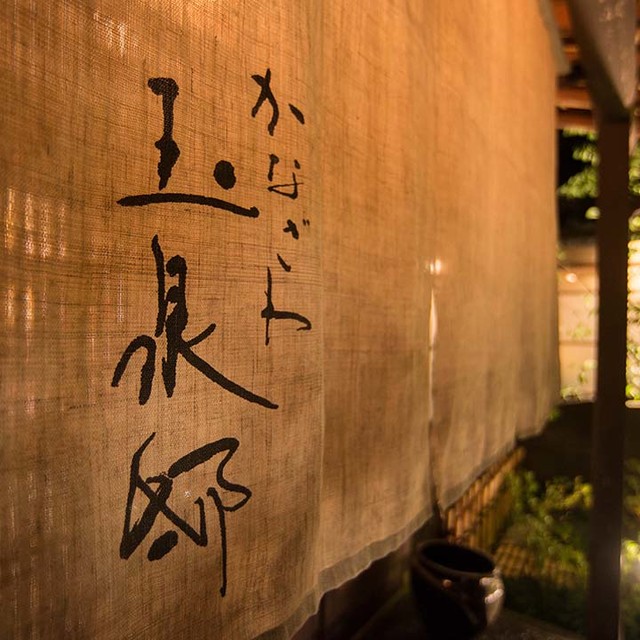 かなざわ
玉泉邸